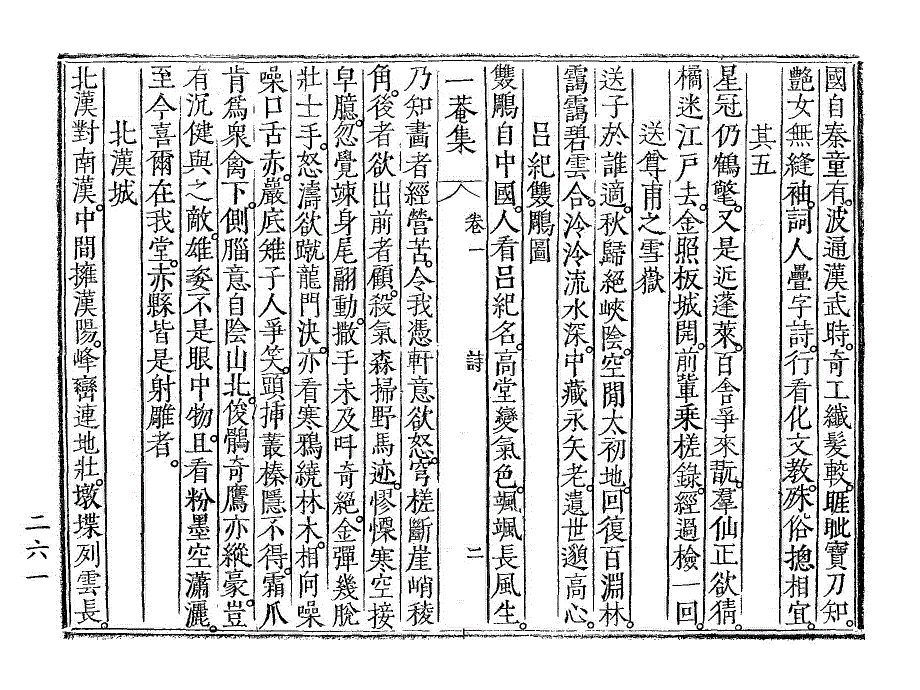 國自秦童有。波通漢武時。奇工纖髮較。睚眦寶刀知。
艶女無縫袖。詞人疊字詩。行看化文敎。殊俗摠相宜。
其五
星冠仍鶴氅。又是近蓬萊。百舍爭來翫。羣仙正欲猜。
橘迷江戶去。金照板城開。前輩乘槎錄。經過檢一回。
送尊甫之雪嶽
送子於誰適。秋歸絕峽陰。空聞太初地。回復百淵林。
靄靄碧雲合。泠泠流水深。中藏永矢老。遺世邈高心。
呂紀雙鵰圖
雙鵰自中國。人看呂紀名。高堂變氣色。颯颯長風生。
一菴集 卷一 詩 二
乃知畫者經營苦。令我憑軒意欲怒。穹槎斷崖峭稜
角。後者欲出前者顧。殺氣森掃野馬迹。憀慄寒空接
早臆。忽覺竦身尾翮動。撒手未及呌奇絕。金彈幾脫
壯士手。怒濤欲蹴龍門決。亦看寒鴉繞林木。相向噪
噪口舌赤。巖底雉子人爭笑。頭揷叢榛隱不得。霜爪
肯爲衆禽下。側腦意自陰山北。俊鶻奇鷹亦縱豪。豈
有沉健與之敵。雄姿不是眼中物。且看粉墨空瀟灑。
至今喜爾在我堂。赤縣皆是射雕者。
北漢城
北漢對南漢。中間擁漢陽。峰巒連地壯。墩堞列雲長。
二六一